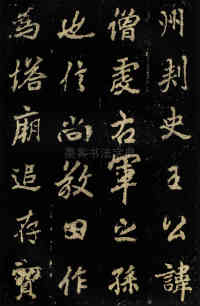 州刺史王公諱
僧虔右軍之孫
也信尚敦田作
爲塔廟追存寶